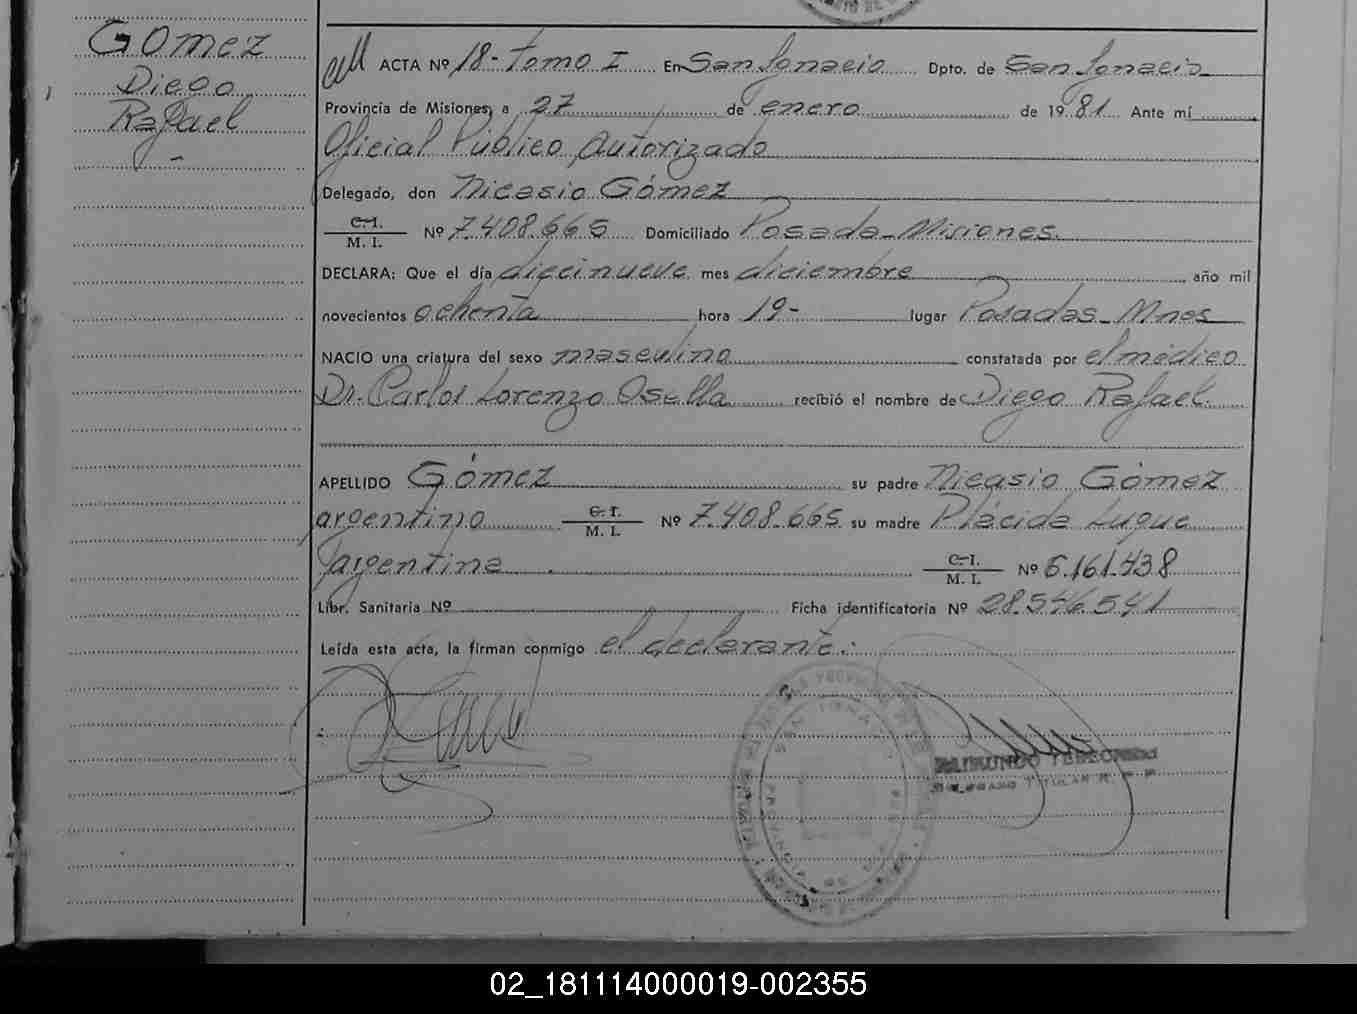 Gómez
Diego
Rafael
ACTA Nº 18- Tomo I En San Ignacio Dpto. de San Ignacio
Provincia de Misiones, a 27 de enero de 1981 Ante mí
Oficial Público Autorizado
Delegado, don Nicasio Gómez
C. I.
M. I. Nº 7.408.665 Domiciliado Posadas-Misiones.
DECLARA: Que el día diecinueve mes diciembre año mil
novecientos ochenta hora 19- lugar Posadas-Mnes
NACIO una criatura del sexo masculino constatada por el médico
Dr. Carlos Lorenzo Osella recibió el nombre de Diego Rafael.
APELLIDO Gómez su padre Nicasio Gómez
argentino C. I. M. I. Nº 7.408.665 su madre Plácida Luque
argentina. C. I. M. I. Nº 6.161.438
Libr. Sanitaria Nº Ficha identificatoria Nº 28.546.541
Leída esta acta, la firman conmigo el declarante.:
TITULAR
02_181114000019-002355